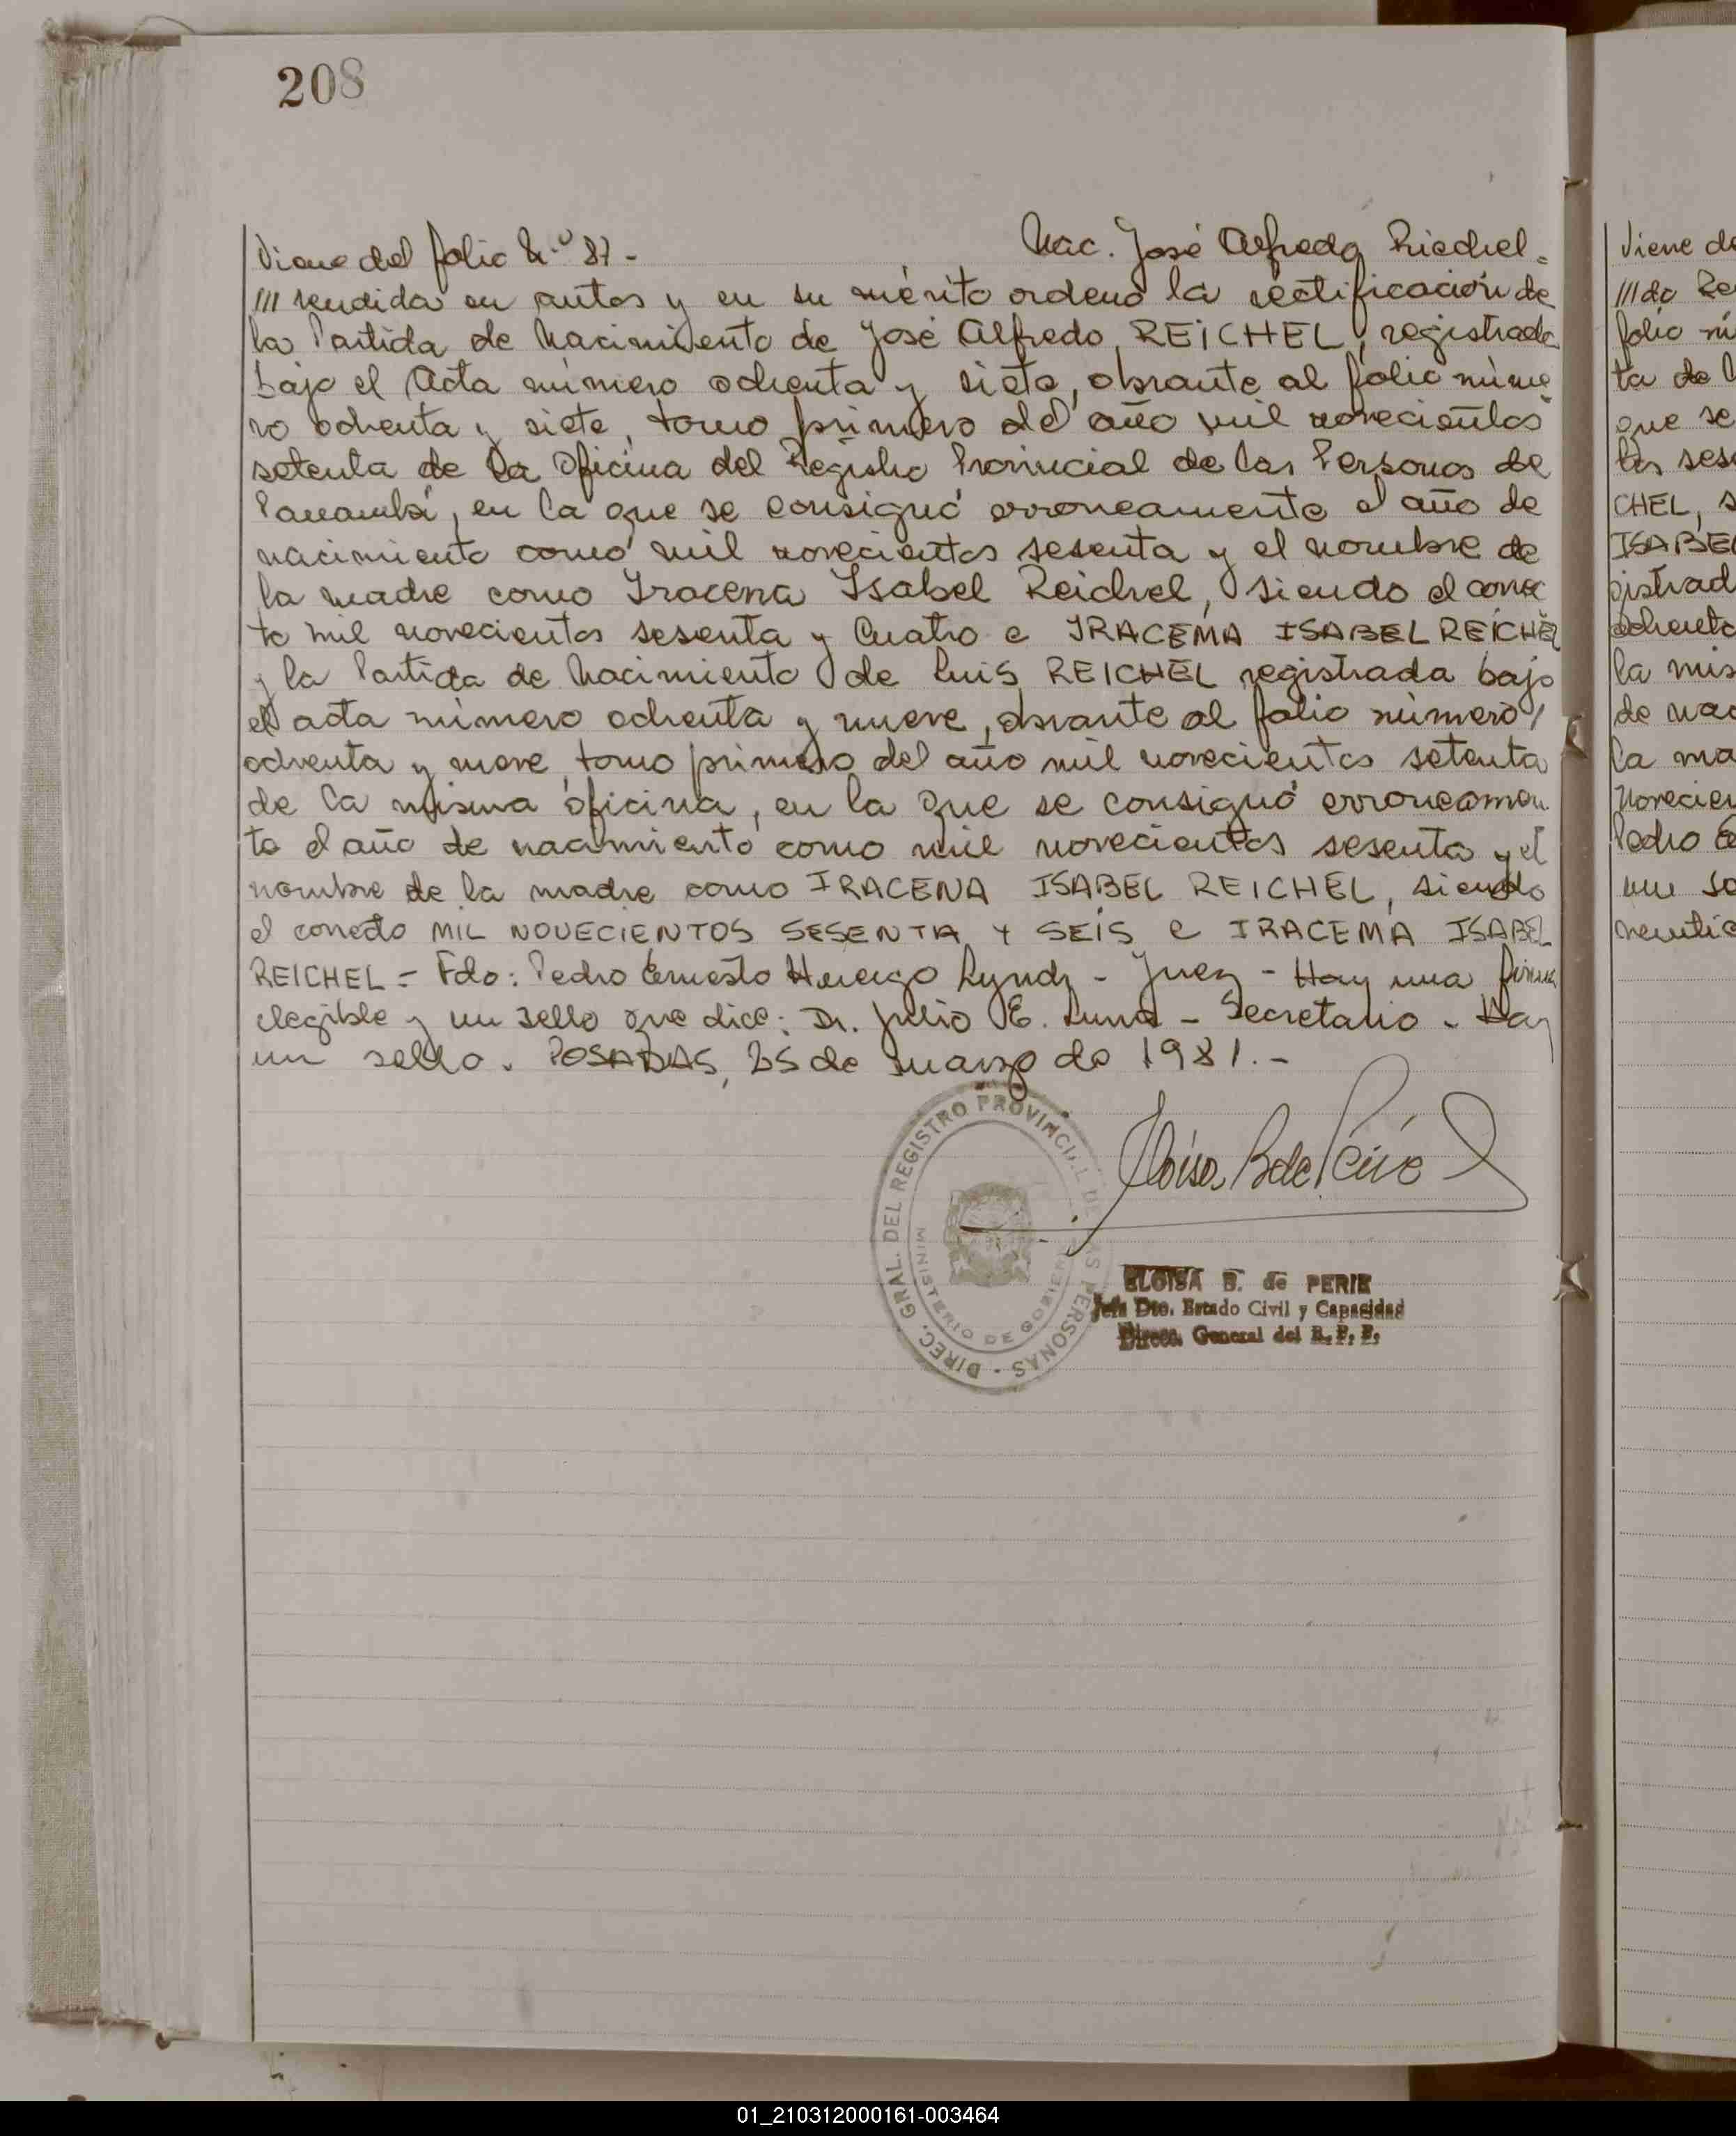 208
Viene del folio N.º 87 - Nac. José Alfredo Riechel.
/// rendida en autos y en su mérito ordeno la rectificación de
la Partida de Nacimiento de José Alfredo REICHEL, registrada
bajo el Acta número ochenta y siete, obrante al folio núme
ro ochenta y siete, tomo primero del año mil novecientos
setenta de la Oficina del Registro Provincial de las Personas de
Panambí, en la que se consignó erroneamente el año de
nacimiento como mil novecientos sesenta y el nombre de
la madre como Iracena Isabel Reichel, siendo el correc
to mil novecientos sesenta y Cuatro e IRACEMA ISABEL REICHEL
y la Partida de Nacimiento de Luis REICHEL registrada bajo
el acta número ochenta y nueve, obrante al folio número/
ochenta y nueve, tomo primero del año mil novecientos setenta
de la misma oficina, en la que se consignó erroneamen
te el año de nacimiento como mil novecientos sesenta y el
nombre de la madre como IRACENA ISABEL REICHEL, siendo
el correcto MIL NOVECIENTOS SESENTA Y SEIS e IRACEMA ISABEL
REICHEL = Fdo: Pedro Ernesto Lynch - Juez - Hay una firma
elegible y un sello que dice: Dr. Julio E. Luna - Secretario - Hay
un sello. POSADAS, 25 de marzo de 1981.-
DIREC. GRAL. DEL REGISTRO PROVINCIAL DE LAS PERSONAS -
MINISTERIO DE GOBIERNO
ELOISA B. de PERIE
Jefe Dto. Estado Civil y Capacidad
Direcc. General del R. P. P.
Viene de
///do
folio nú
ta de
que se
los ses
CHEL, s
ISABEL
gistrad
ochenta
la mis
de nac
la ma
Novecien
Pedro
un
01_210312000161-003464